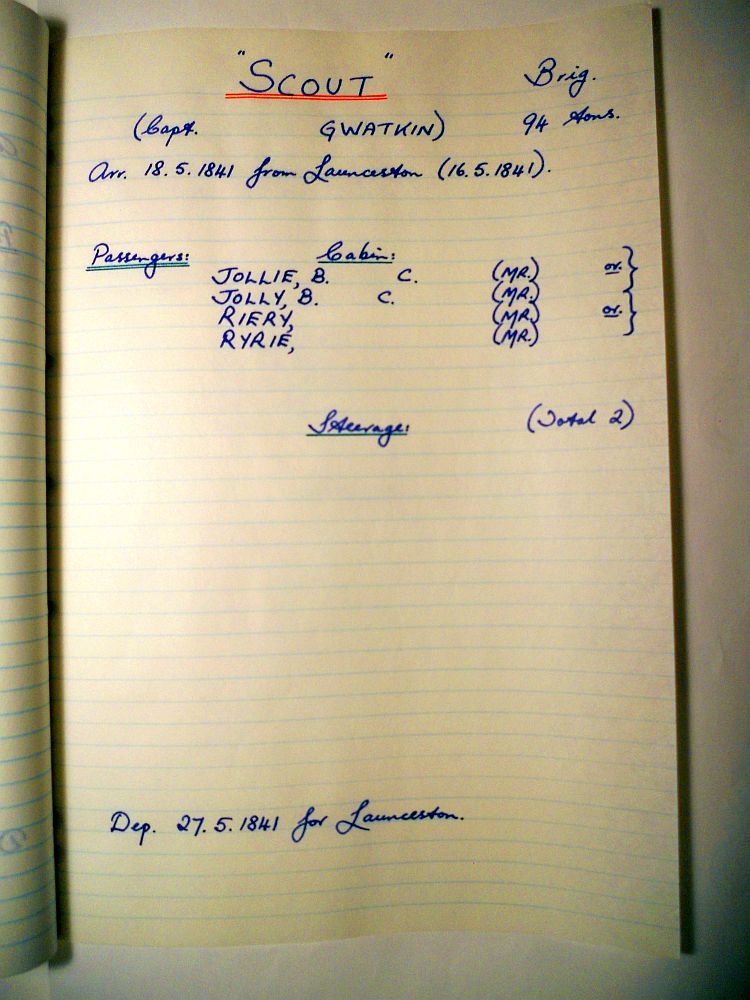 "SCOUT" Brig.
(Capt. GWATKIN) 94 tons.
Arr. 18.5.1841 from Launceston (16.5.1841).
Passengers: Cabin:
JOLLIE, B. C. (MR.) or. }
JOLLY, B. C. (MR.)
RIERY, (MR.) or. }
RYRIE, (MR.)
Steerage: (Total 2)
Dep. 27.5.1841 for Launceston.